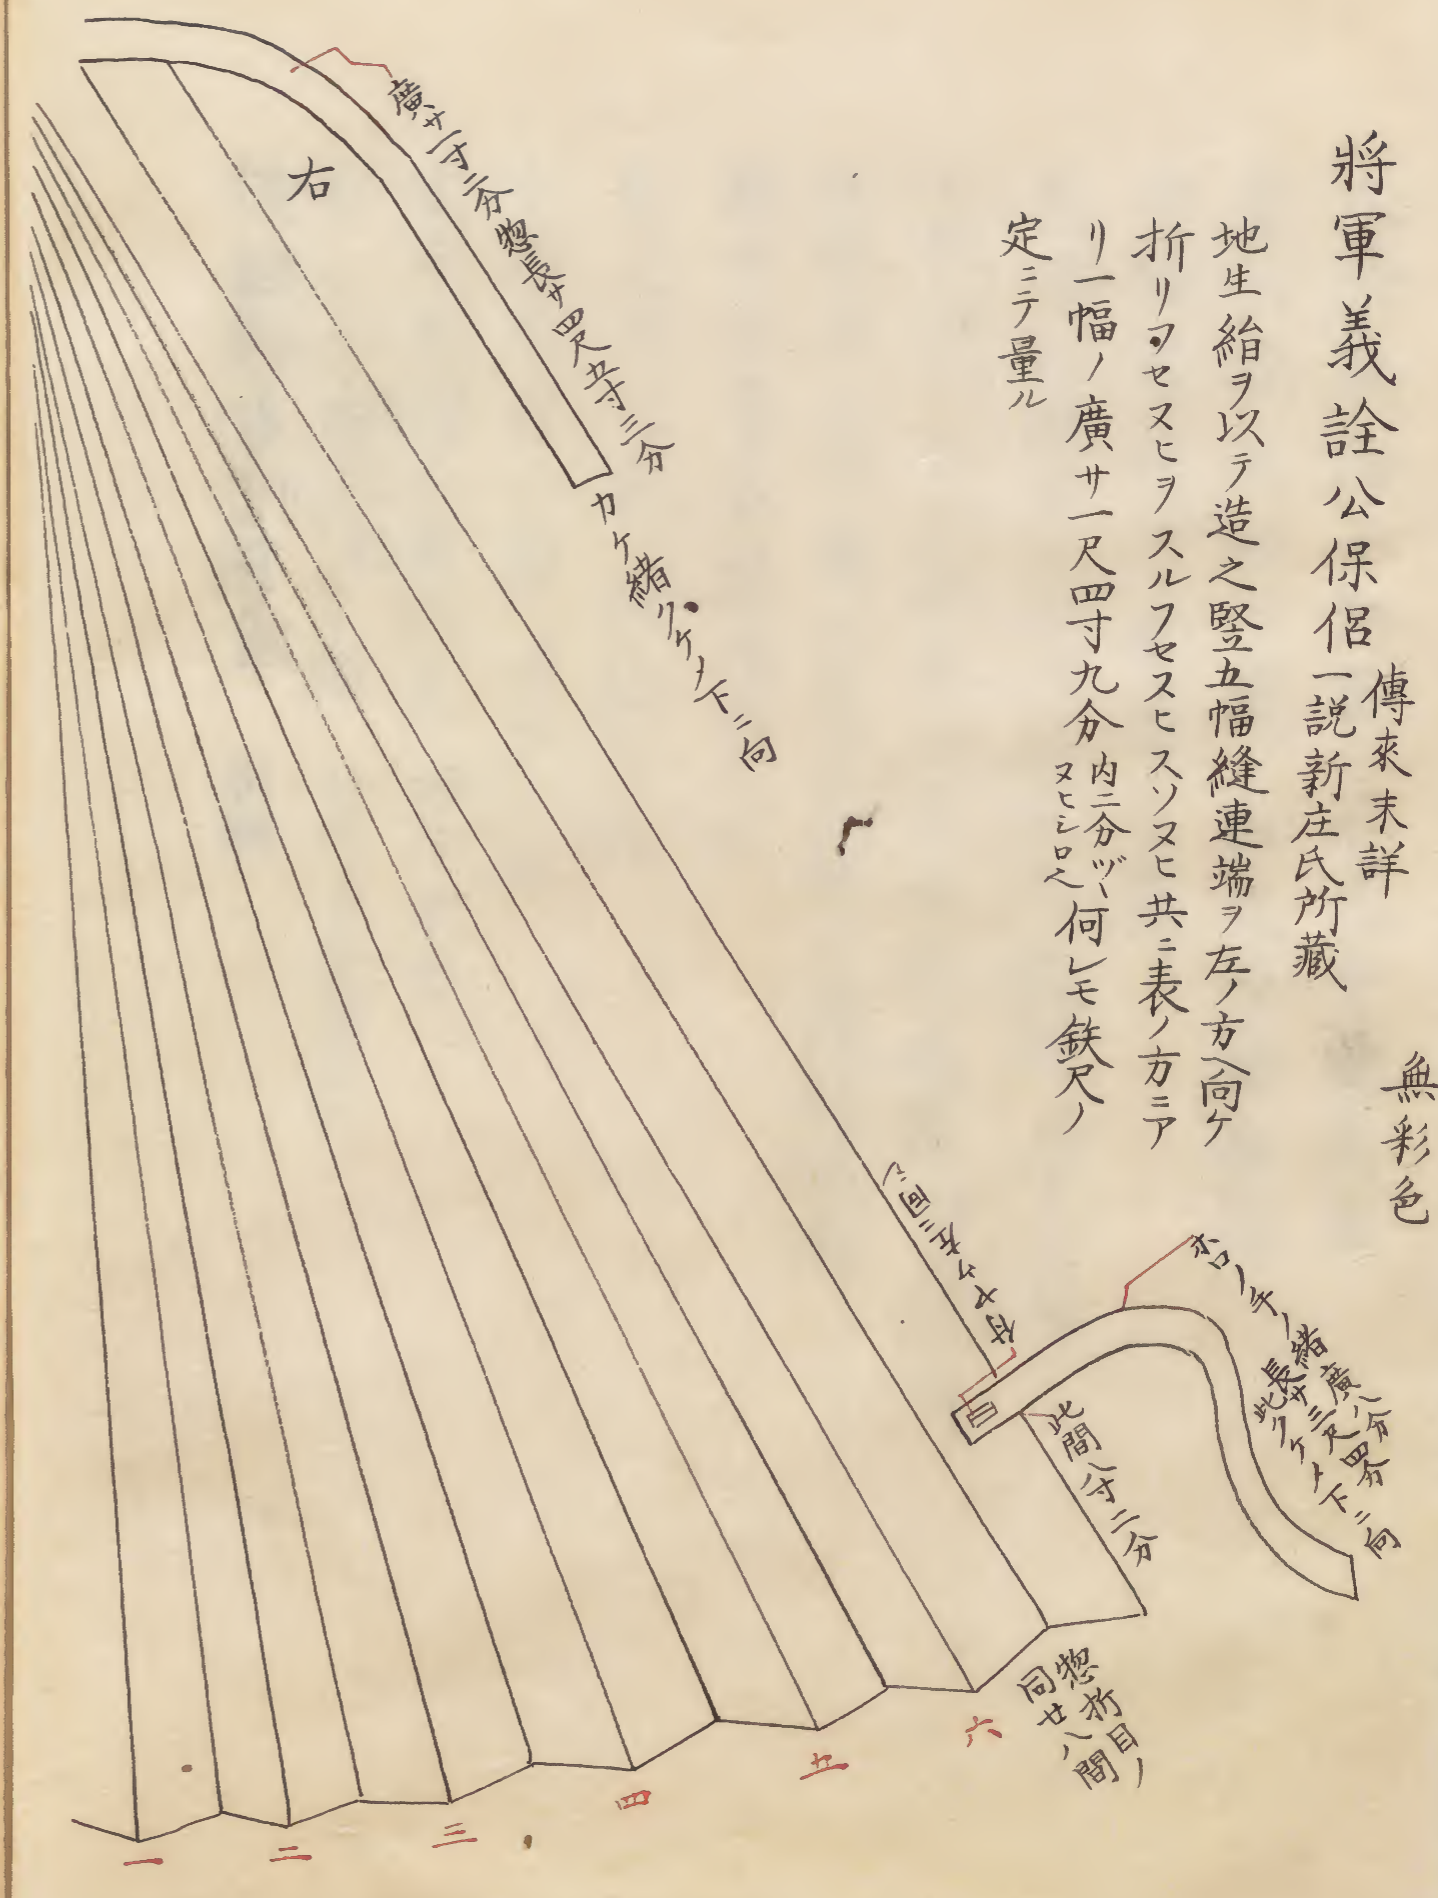 無彩色
將軍義詮公保侶
傳來未詳
一説新庄氏所藏
地生絹ヲ以テ造之竪五幅縫連端ヲ左ノ方ヘ向ケ
折リヲセヌヒヲスルフセスヒスソヌヒ共ニ表ノ方ニア
リ一幅ノ廣サ一尺四寸九分
内二分ヅヽ
ヌヒシロヘ
何レモ鉄尺ノ
定ニテ量ル
廣サ一寸二分惣長サ四尺五寸三分
カケ緒クケノ下ニ向
右
付ヤケ左ニ同シ
ホロノチノ緒
廣八分
長サ三尺四分
此クケノ下ニ向
此間八寸二分
惣折目ノ
間廿八間
一
二
三
四
五
六